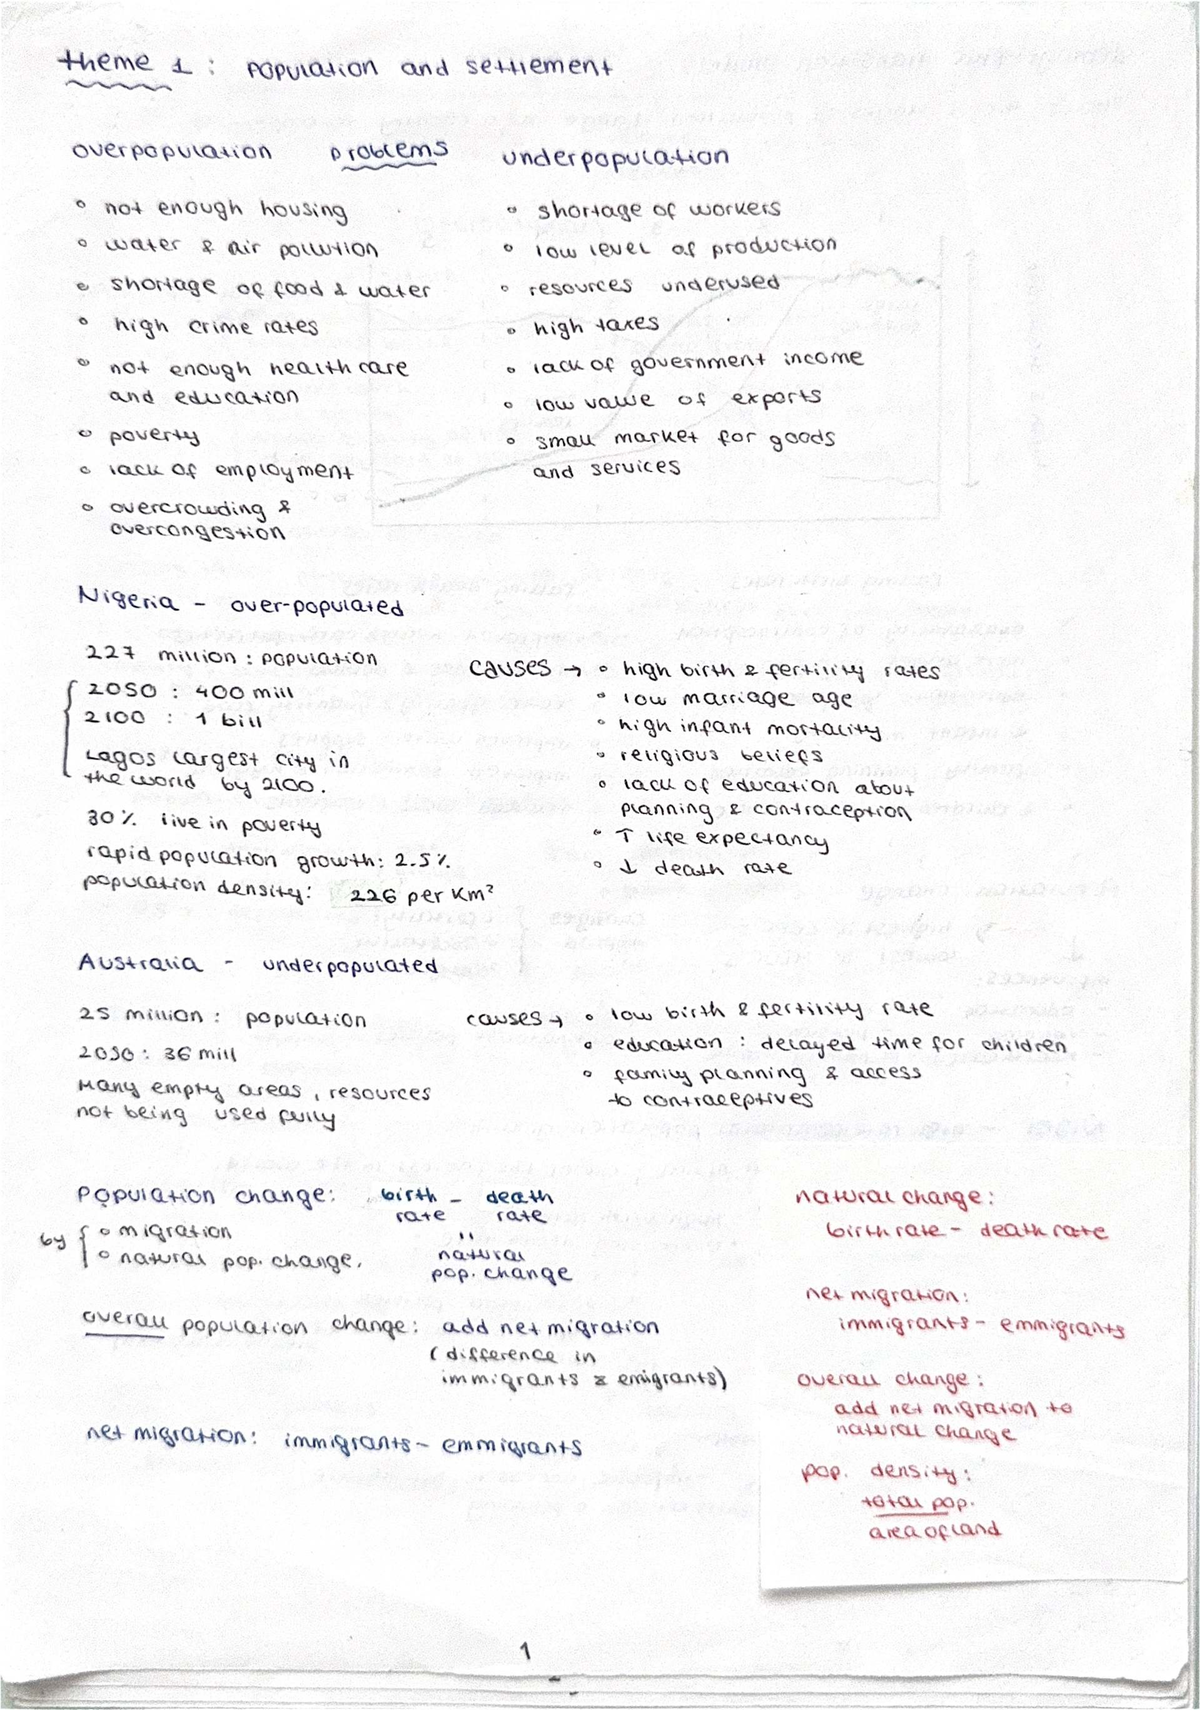 theme 1 : population and settlement
overpopulation problems underpopulation
◦ not enough housing
◦ water & air pollution
◦ shortage of food & water
◦ high crime rates
◦ not enough health care
and education
◦ poverty
◦ lack of employment
◦ overcrowding &
overcongestion
◦ shortage of workers
◦ low level of production
◦ resources underused
◦ high taxes
◦ lack of government income
◦ low value of exports
◦ small market for goods
and services
Nigeria - over-populated
227 million : population
2050 : 400 mill
2100 : 1 bill
Lagos largest city in
the world by 2100.
30% live in poverty
rapid population growth: 2.5%
population density: 226 per km²
causes → ◦ high birth & fertility rates
◦ low marriage age
◦ high infant mortality
◦ religious beliefs
◦ lack of education about
planning & contraception
◦ ↑ life expectancy
◦ ↓ death rate
Australia - underpopulated
25 million : population
2050 : 36 mill
Many empty areas, resources
not being used fully
causes → ◦ low birth & fertility rate
◦ education : delayed time for children
◦ family planning & access
to contraceptives
Population change: birth - death
rate rate
by { ◦ migration
◦ natural pop. change.
"
natural
pop. change
overall population change: add net migration
(difference in
immigrants & emigrants)
net migration: immigrants - emmigrants
natural change:
birth rate - death rate
net migration:
immigrants - emmigrants
overall change:
add net migration to
natural change
pop. density:
total pop.
area of land
1